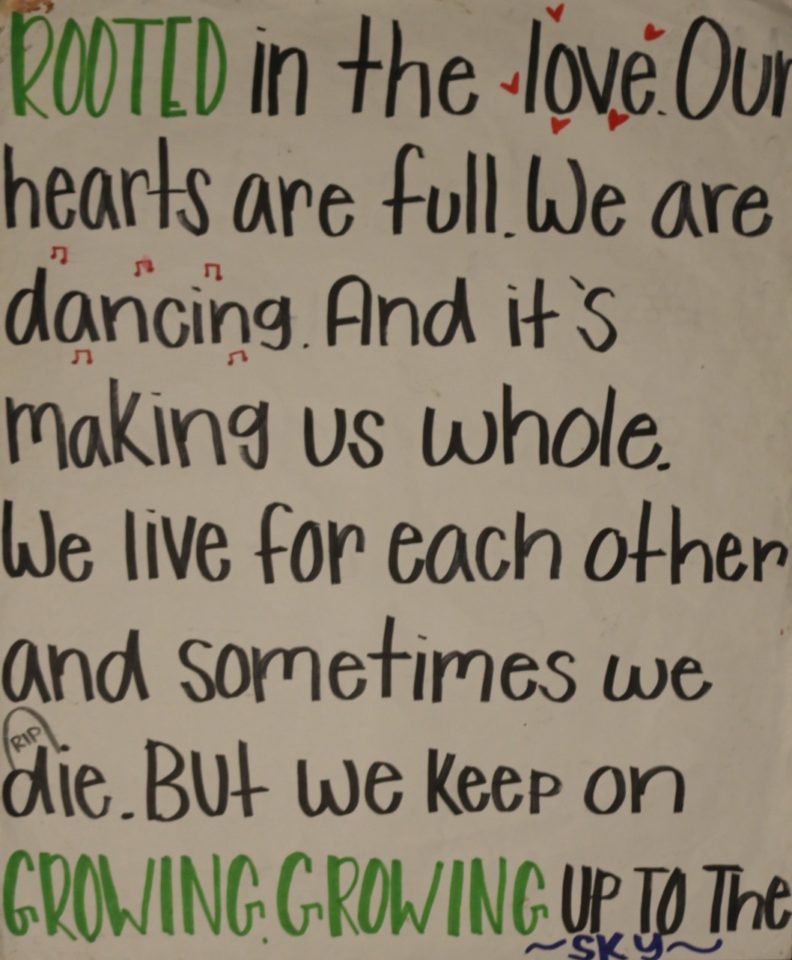 ROOTED in the love. Our
hearts are full. We are
dancing. And it's
making us whole.
We live for each other
and sometimes we
RIP
die. But we keep on
GROWING. GROWING UP TO The
~SKY~